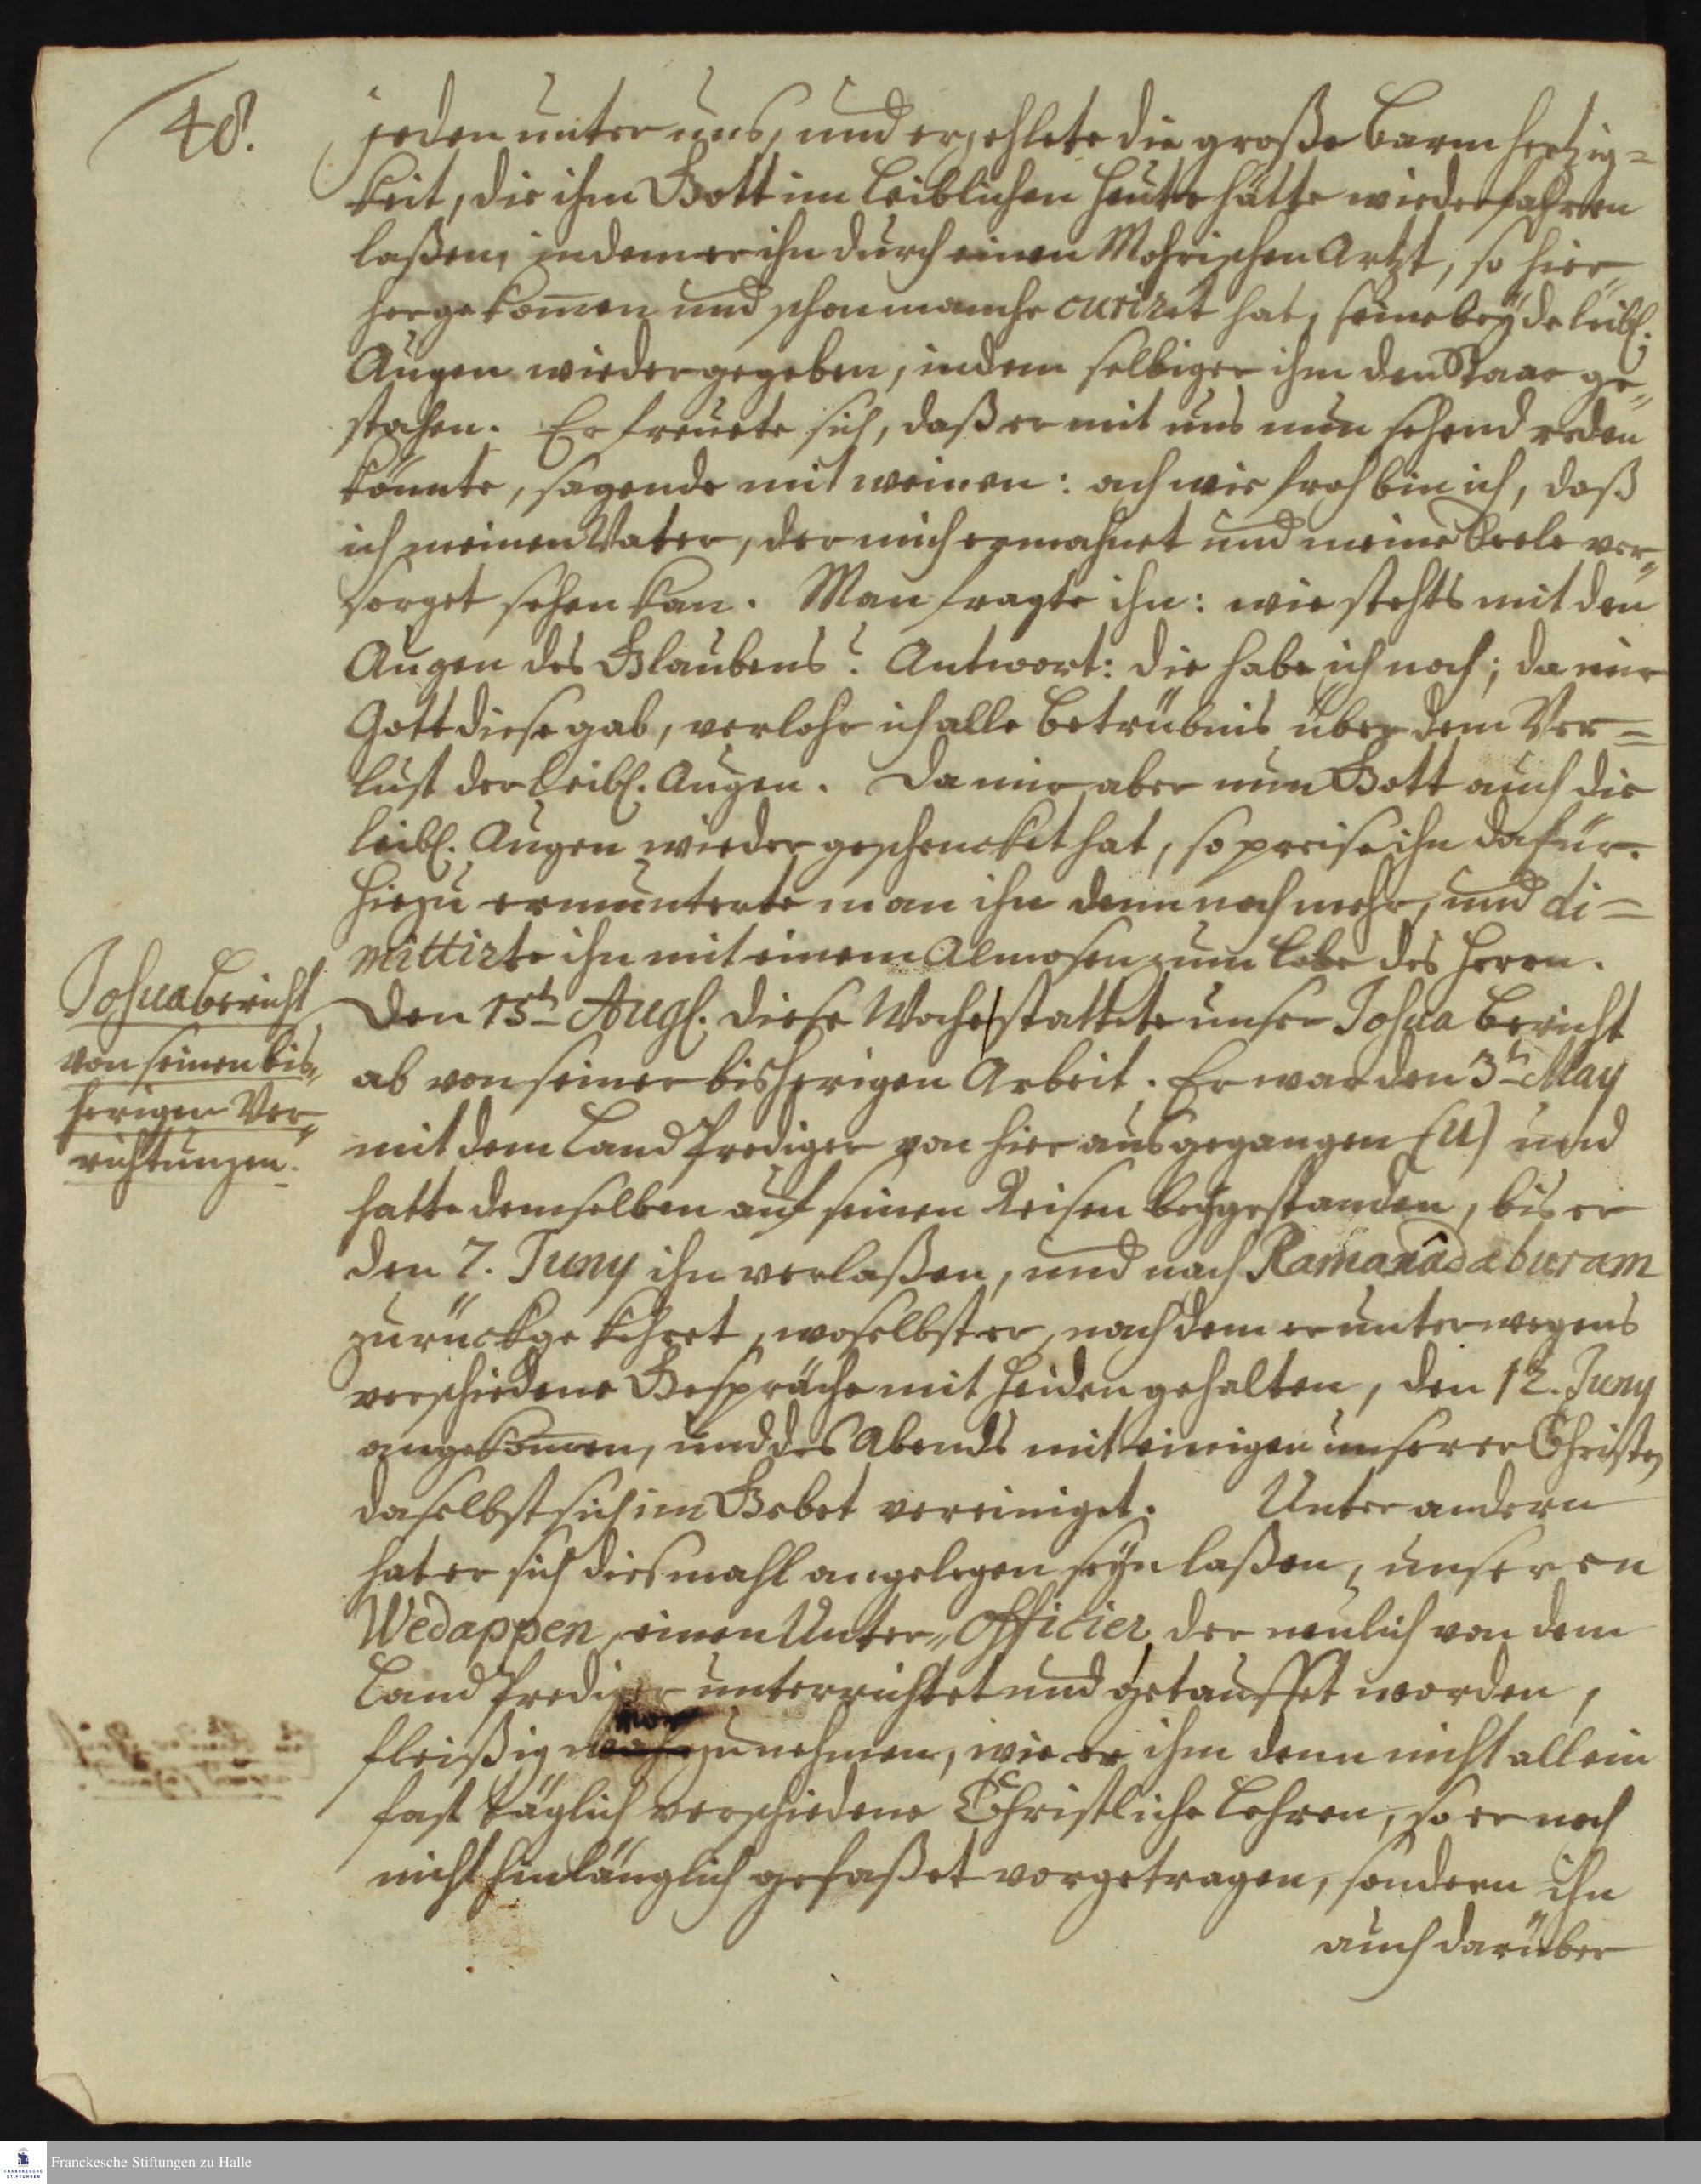 48.
jeden unter uns, und erzehlete die große Barmhertzig=
keit, die ihm Gott im leiblichen heute hätte wiederfahren
laßen, indem er ihn durch einen Mohrischen Artzt, so hier„
hergekom̅en und schon manche curiret hat, seine beyde leibl.
Augen wiedergegeben, indem selbiger ihm den Staar ge„
stochen. Er freuete sich, daß er mit uns nun sehend reden
könnte, sagende mit weinen: ach wie froh bin ich, daß
ich meinen Vater, der mich ermahnet und meine Seele ver„
sorget sehen kan. Man fragte ihn: wie stehts mit den
Augen des Glaubens? Antwort: die habe ich noch; da mir
Gott diese gab, verlohr ich alle Betrübnis über dem Ver=
lust der leibl. Augen. Da mir aber nun Gott auch die
leibl. Augen wieder geschencket hat, so preise ihn dafür.
Hiezu ermunterte man ihn denn noch mehr, und di=
mittirte ihn mit einem Almosen zum Lobe des Herrn.
Josua Bericht
von seinen bis„
herigen Ver„
richtungen.
Den 15t Augl. diese Woche stattete unser Josua Bericht
ab von seiner bisherigen Arbeit. Er war den 3t May
mit dem Land Prediger von hier ausgegangen (U) und
hatte demselben auf seinen Reisen beygestanden, bis er
den 7. Juny ihn verlaßen, und nach Ramanâdaburam
zurückgekehret, woselbst er, nachdem er unterwegens
verschiedene Gespräche mit Heiden gehalten, den 12. Juny
angekom̅en, und des Abends mit einigen unserer Christen
daselbst sich im Gebet vereiniget. Unter andern
hat er sich diesmahl angelegen seyn laßen, unseren
Wedappen, einen Unter„Officier, der neulich von dem
Land Prediger unterrichtet und getauffet worden,
fleißig vorzunehmen, wie er ihm denn nicht allein
fast täglich verschiedene Christliche Lehren, so er noch
nicht hinlänglich gefaßet vorgetragen, sondern ihn
auch darüber
Franckesche Stiftungen zu Halle
FRANCKESCHE
STIFTUNGEN